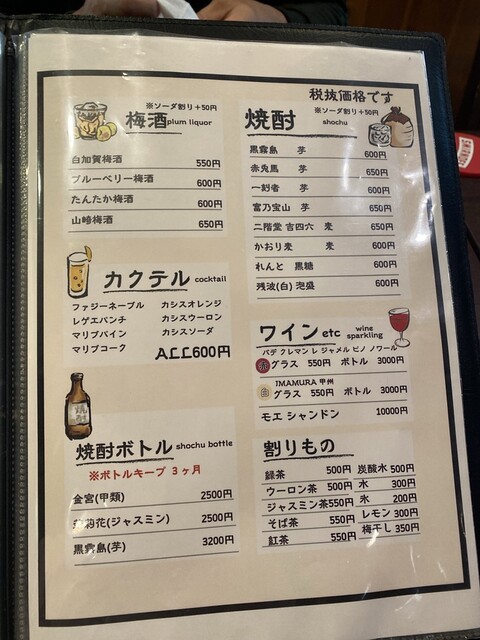 税抜価格です
※ソーダ割り+50円
梅酒 plum liquor
白加賀梅酒 550円
ブルーベリー梅酒 600円
たんたか梅酒 600円
山崎梅酒 650円
カクテル cocktail
ファジーネーブル カシスオレンジ
レゲエパンチ カシスウーロン
マリブパイン カシスソーダ
マリブコーク ALL600円
焼酎
焼酎ボトル shochu bottle
※ボトルキープ 3ヶ月
金宮(甲類) 2500円
花(ジャスミン) 2500円
黒霧島(芋) 3200円
※ソーダ割り+50円
焼酎 shochu
黒霧島 芋 600円
赤兎馬 芋 650円
一刻者 芋 600円
富乃宝山 芋 650円
二階堂 吉四六 麦 650円
かおり麦 麦 600円
れんと 黒糖 600円
残波(白) 泡盛 650円
ワイン etc wine sparkling
パデ クレマン レ ジャメル ピノ ノワール
赤 グラス 550円 ボトル 3000円
IMAMURA 甲州
白 グラス 550円 ボトル 3000円
モエ シャンドン 10000円
割りもの
緑茶 500円 炭酸水 500円
ウーロン茶 500円 水 300円
ジャスミン茶 550円 氷 200円
そば茶 550円 レモン 300円
紅茶 550円 梅干し 350円